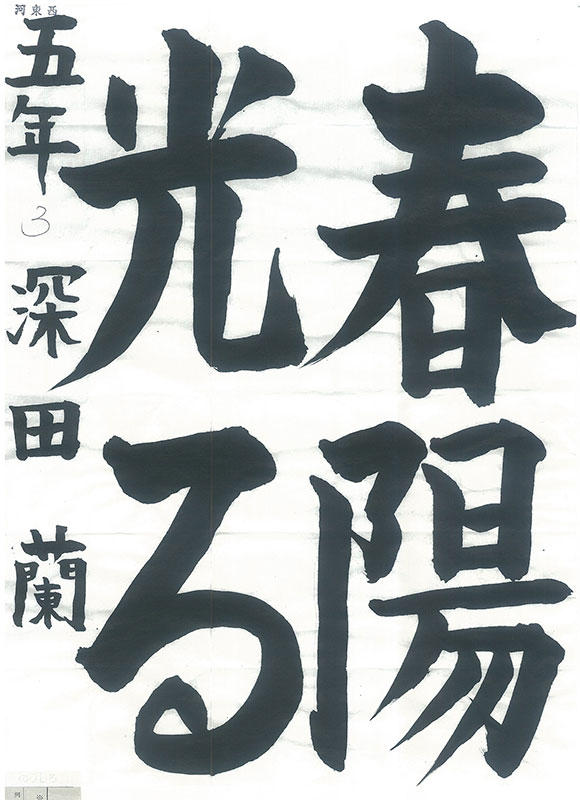 春陽
光る
五年 3 深田 蘭
河東西